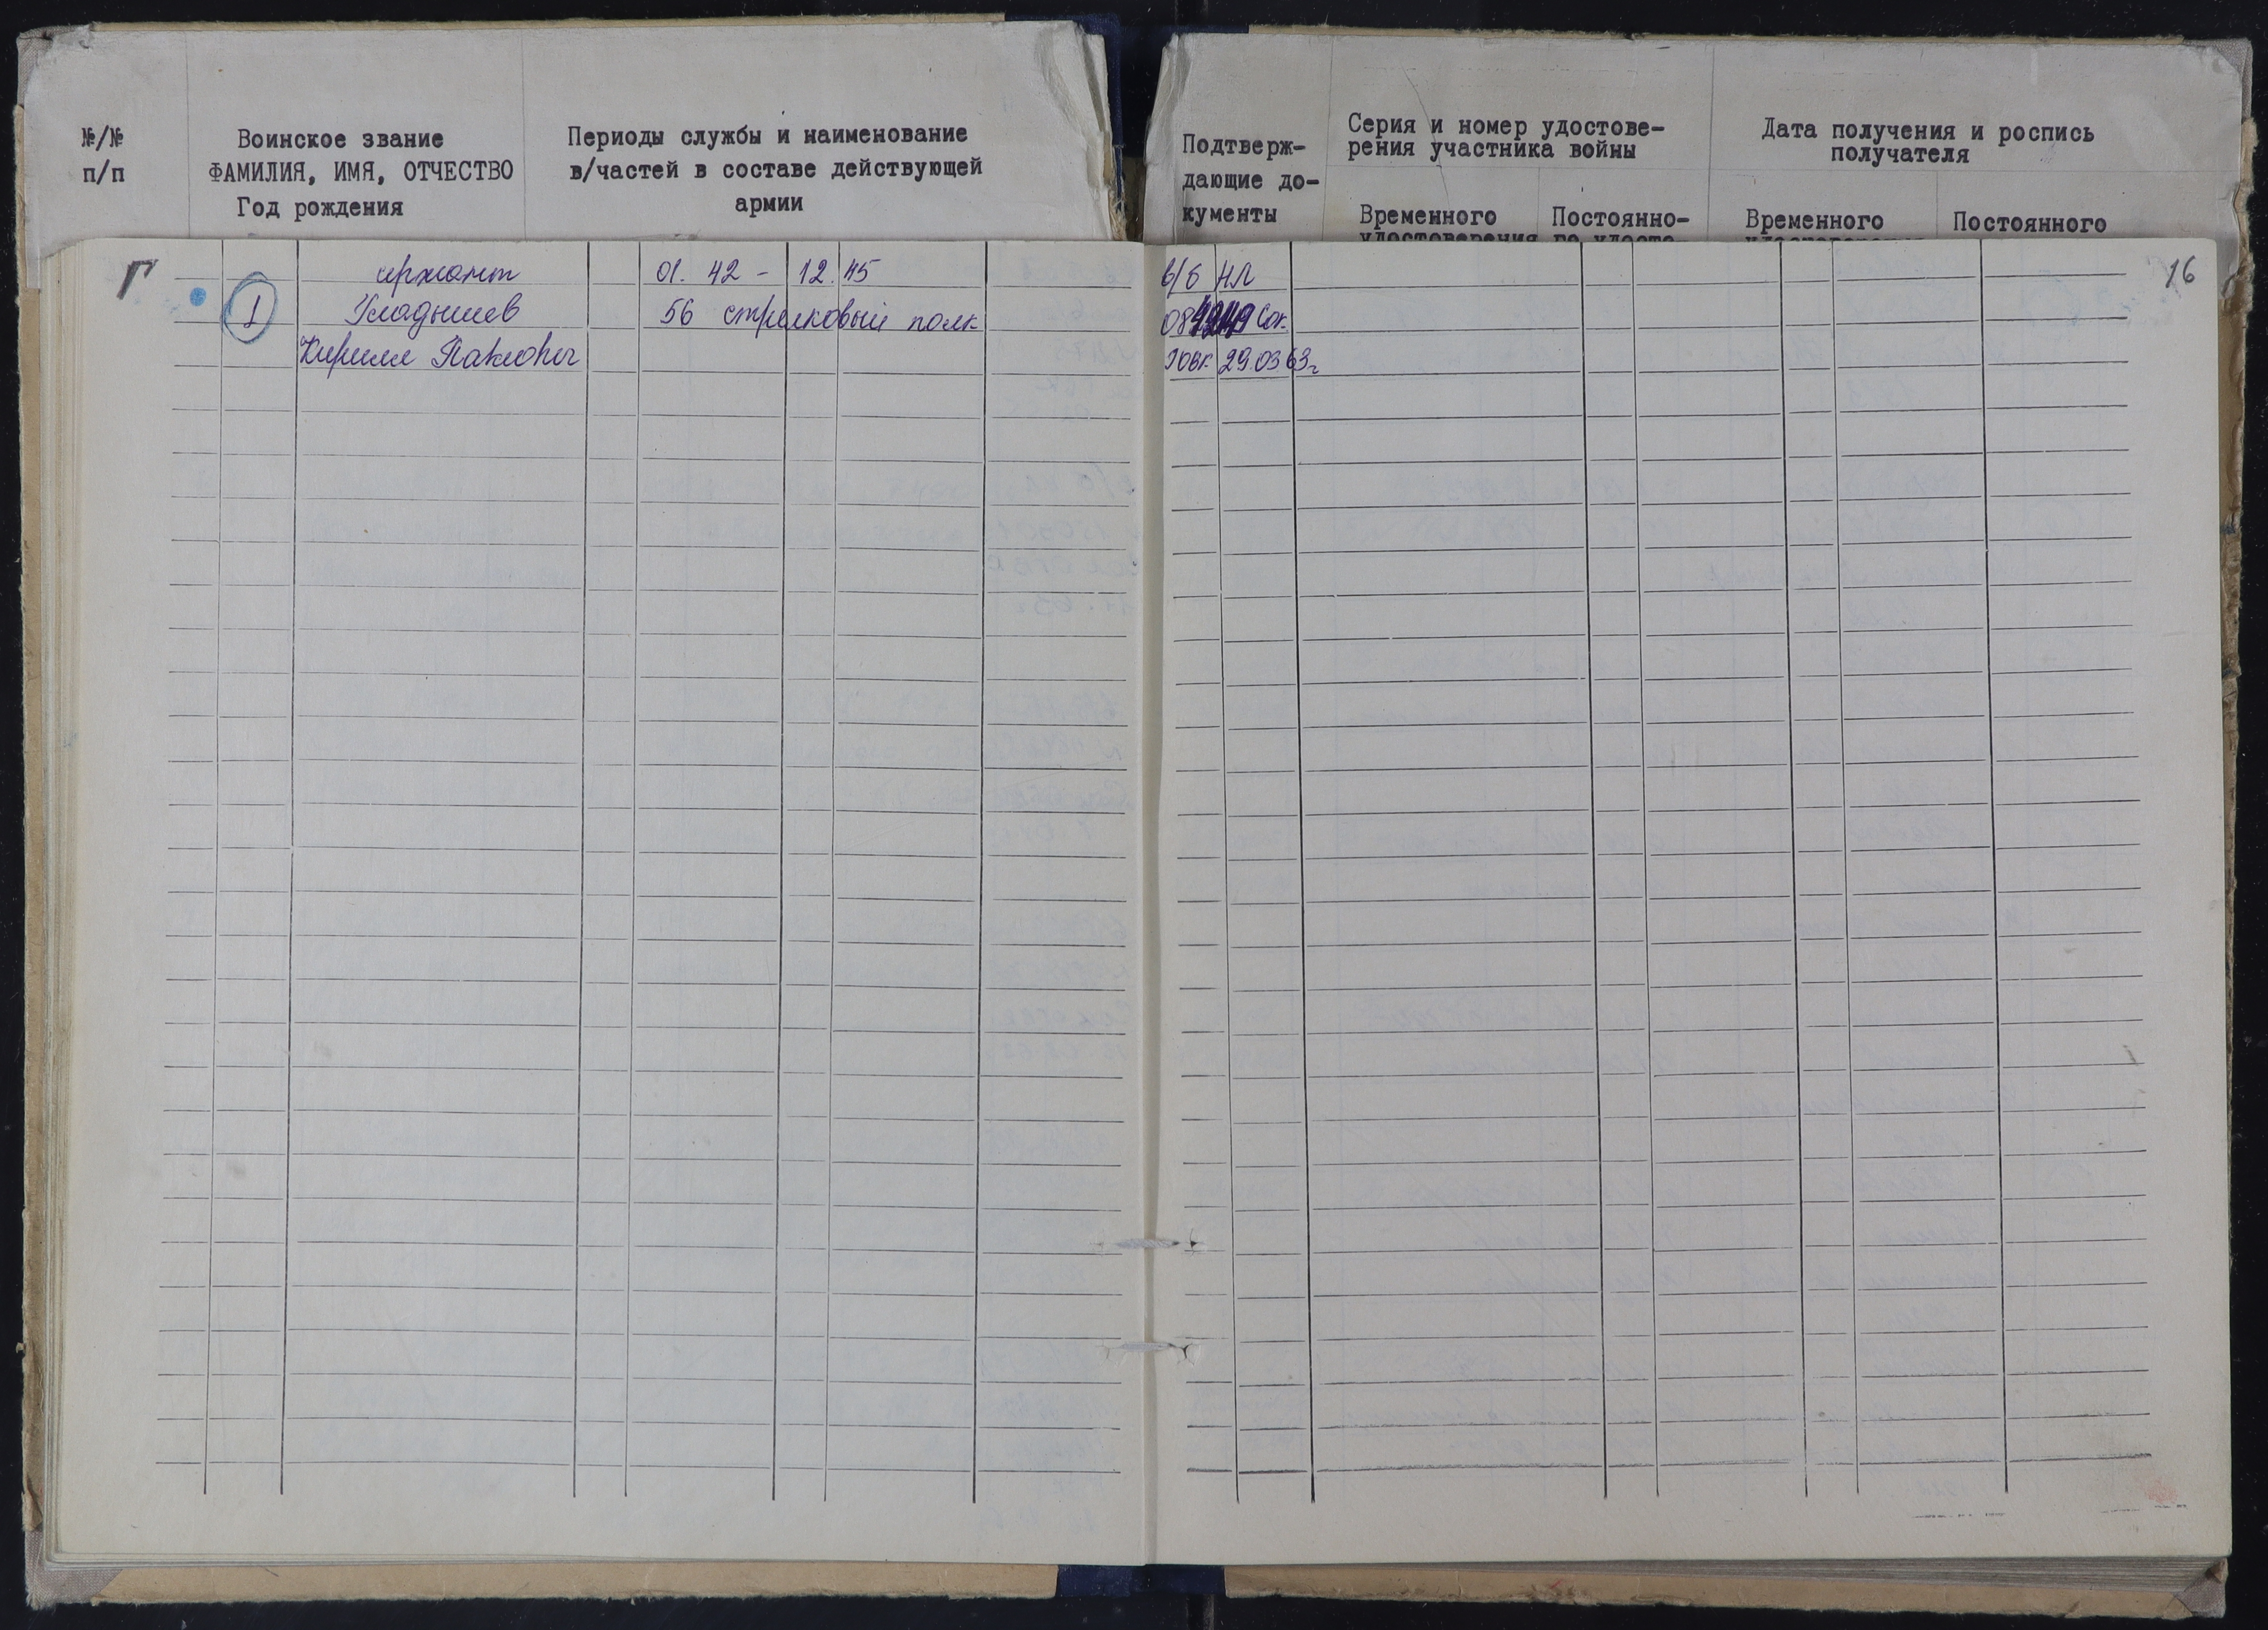 №/№
п/п
Воинское звание
ФАМИЛИЯ, ИМЯ, ОТЧЕСТВО
Год рождения
Периоды службы и наименование
в/частей в составе действующей
армии
Подтверж-
дающие до-
кументы
Серия и номер удостове-
рения участника войны
Временного
удостоверения
Постоянно-
го удосто-
Дата получения и роспись
получателя
Временного
Постоянного
Г
16
1
сержант
Гладышев
Кирилл Павлович
01. 42 - 12. 45
56 стрелковый полк
в/б НЛ
Сок.
РВК 29.03.63г